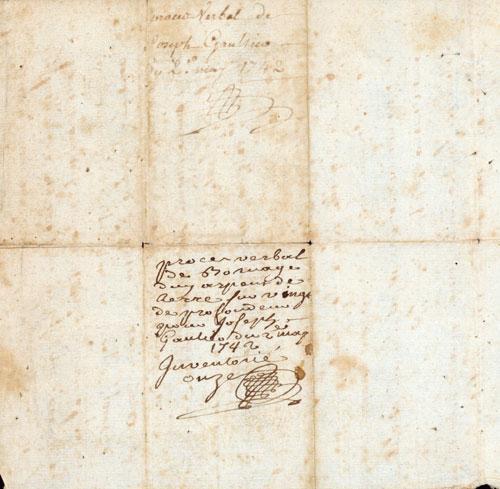 proces Verbal de
Joseph Gaultier
du 2 may 1742
proces verbal
De Bornage
dun arpent de
terre sur vingt
de profondeur
pour Joseph
Gautier du 2e may
1742
Inventorié
onze